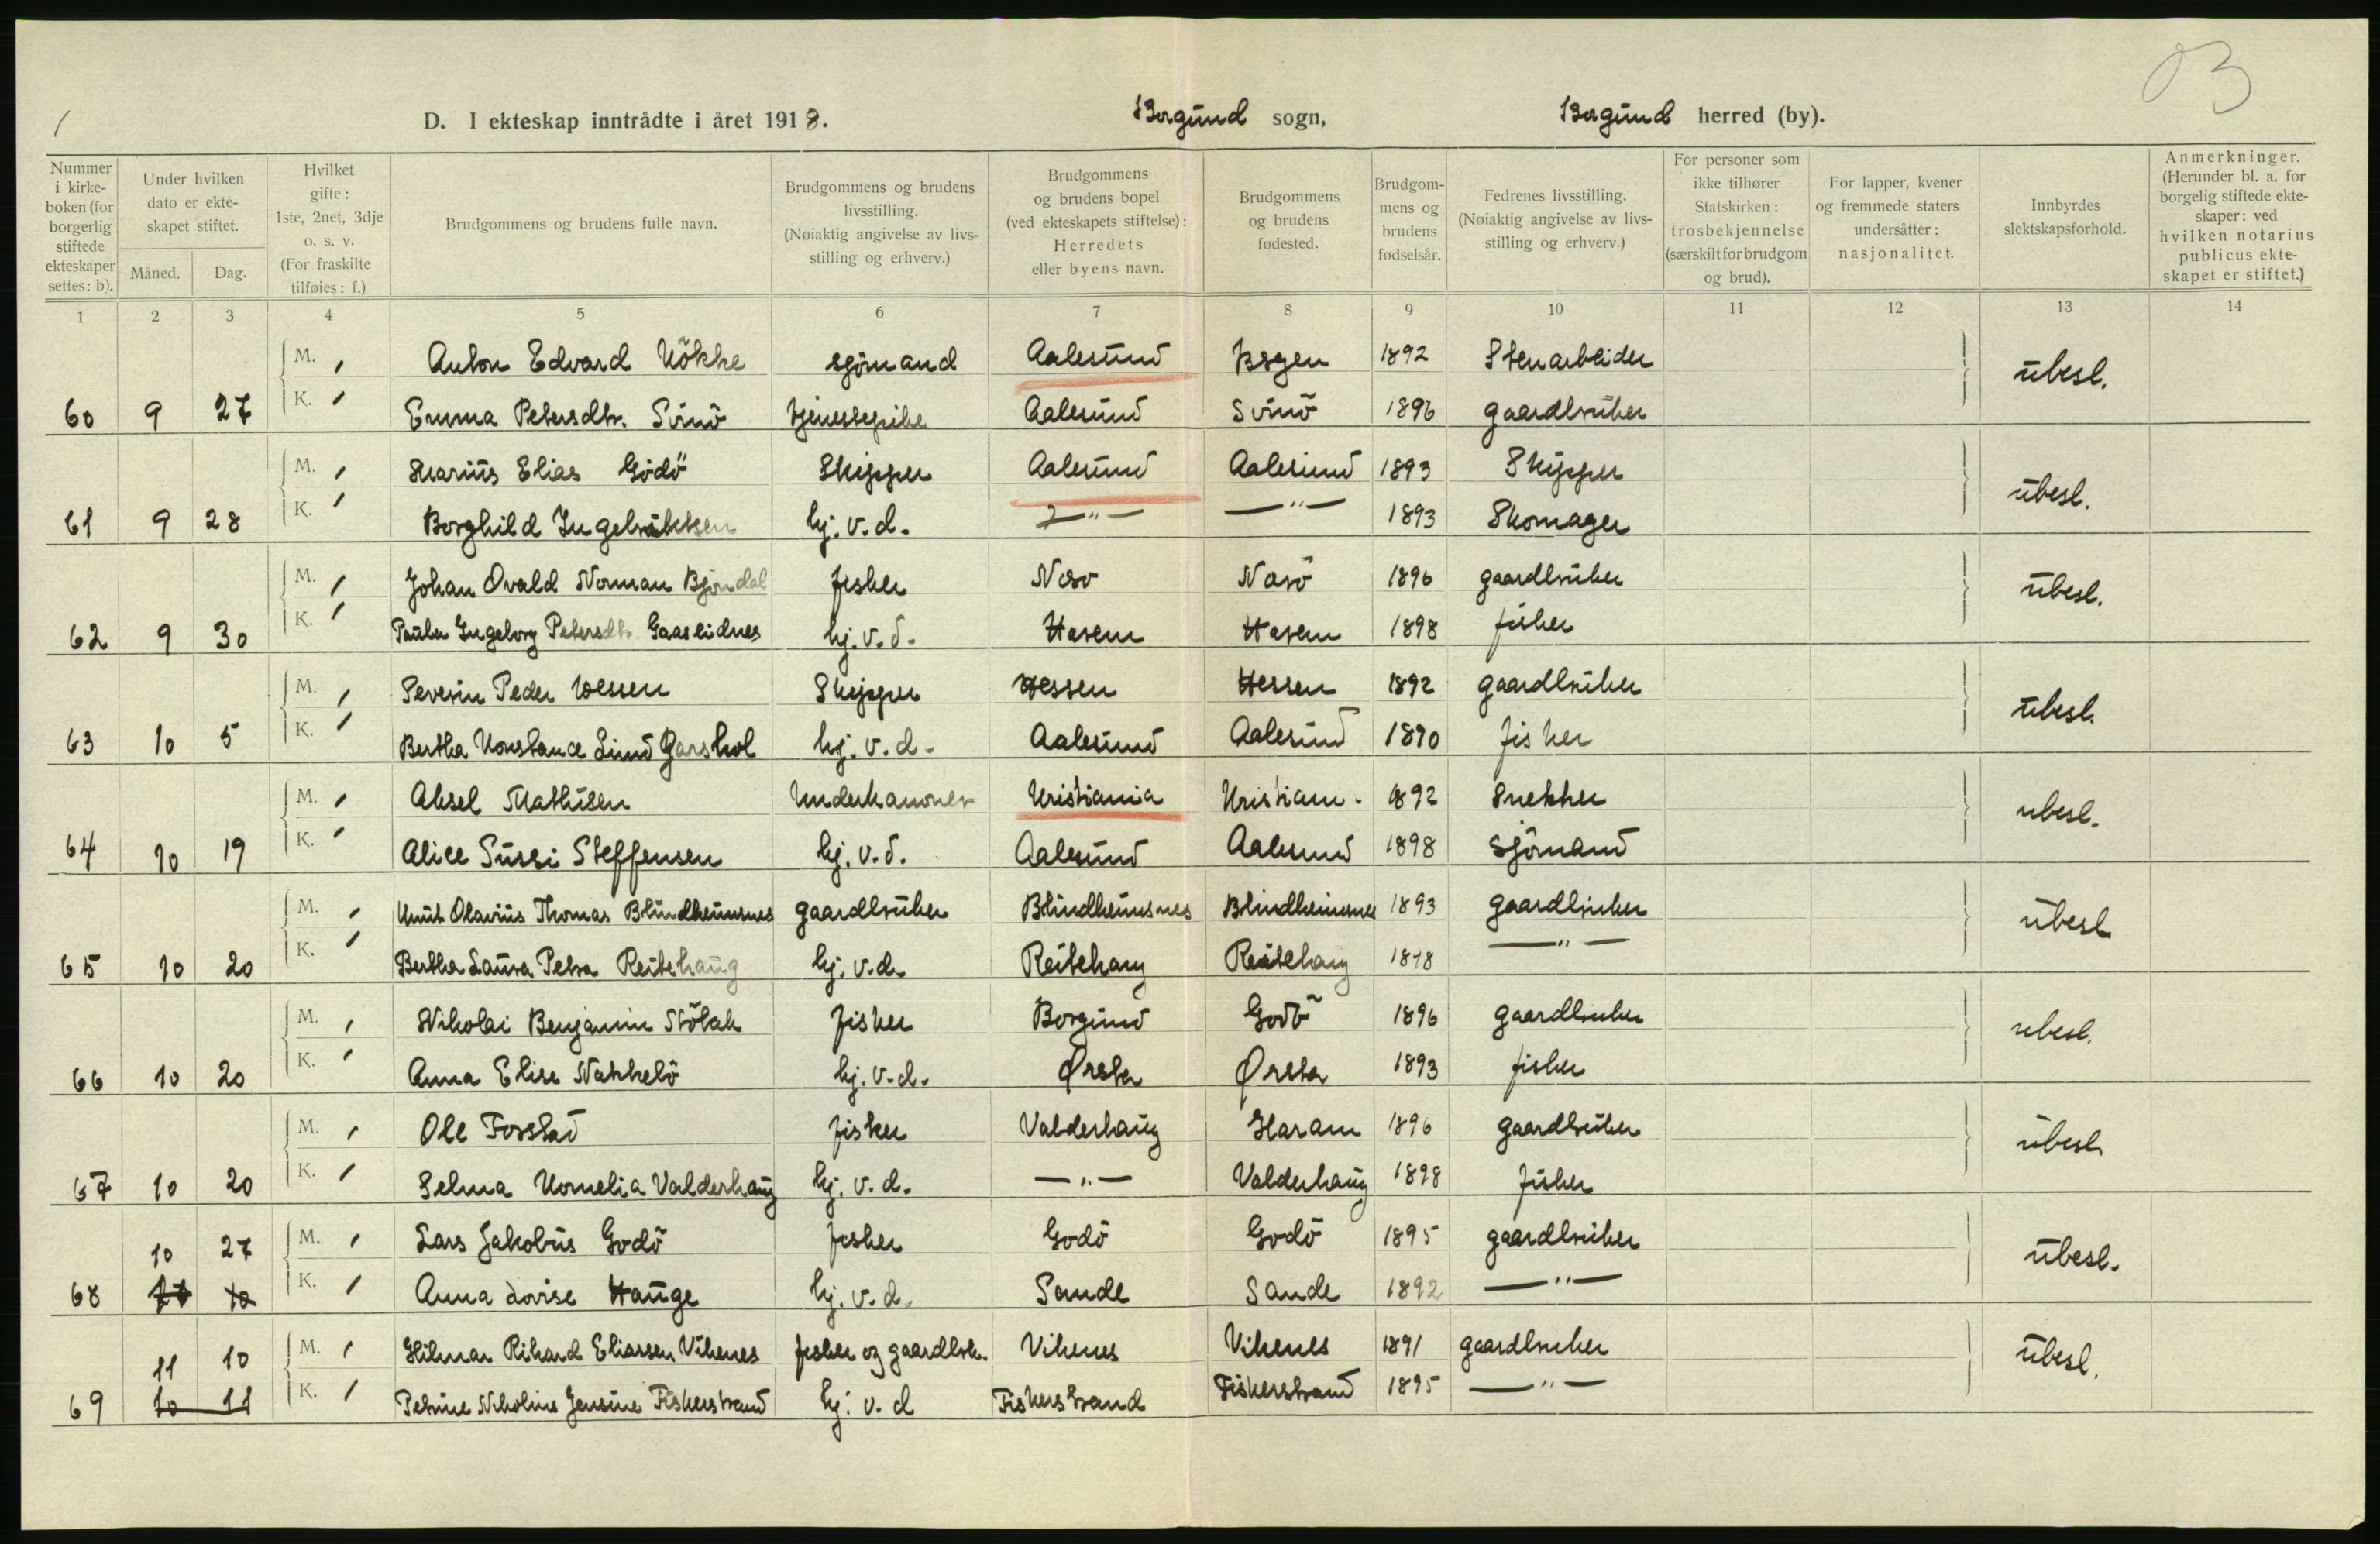 D. I ekteskap inntrådte i året 1918. Borgund sogn, Borgund herred (by).
Nummer i kirkeboken (for borgerlig stiftede ekteskaper settes: b).
Under hvilken dato er ekteskapet stiftet.
Måned. Dag.
Hvilket gifte: 1ste, 2net, 3dje o. s. v. (For fraskilte tilføies: f.)
Brudgommens og brudens fulle navn.
Brudgommens og brudens livsstilling. (Nøiaktig angivelse av livsstilling og erhverv.)
Brudgommens og brudens bopel (ved ekteskapets stiftelse): Herredets eller byens navn.
Brudgommens og brudens fødested.
Brudgommens og brudens fødselsår.
Fedrenes livsstilling. (Nøiaktig angivelse av livsstilling og erhverv.)
For personer som ikke tilhører Statskirken: trosbekjennelse (særskilt for brudgom og brud).
For lapper, kvener og fremmede staters undersåtter: nasjonalitet.
Innbyrdes slektskapsforhold.
Anmerkninger. (Herunder bl. a. for borgelig stiftede ekteskaper: ved hvilken notarius publicus ekteskapet er stiftet.)
1 2 3 4 5 6 7 8 9 10 11 12 13 14
M. Anton Edvard Kökke sjömand Aalesund 1892 Stenarbeider ubesl.
60 9 27 K. Emma Petersdtr. Svinö tjenestepike Aalesund Svinö 1896 gaardbruker
M. Marius Elias Godö Skipper Aalesund Aalesund 1893 Skipper ubesl.
61 9 28 K. Borghild Ingebriktsen hj. v. d. —"— —"— 1893 Skomager
M. Johan Ovald Norman Bjöndal fisker Nosö 1896 gaardbruker ubesl.
62 9 30 K. Paula Ingeborg Petersdtr. Gaaseidnes hj. v. d. Hasem Hasem 1898 fisker
M. Severin Peder Hessen Skipper Hessen Hessen 1892 gaardbruker ubesl.
63 10 5 K. Bertha Konstance Lind Garshol hj. v. d. Aalesund Aalesund 1890 fisker
M. Aksel Mathisen Underkanoner Kristiania Kristian. 1892 Snekker ubesl.
64 10 19 K. Alice Sussi Steffensen hj. v. d. Aalesund Aalesund 1898 sjömand
M. Knut Olavius Thomas Blindheimsnes gaardbruker Blindheimsnes Blindheimsnes 1893 gaardbruker ubesl
65 10 20 K. Bertha Laura Petra Reitehaug hj. v. d. Reitehaug Reitehaug —"—
M. Nikolai Benjamin Stöbak fisker Borgund Godö 1896 gaardbruker ubesl.
66 10 20 K. Anna Elise Nakkelö hj. v. d. Ørsta Ørsta 1893 fisker
M. Ole Fosstad fisker Valderhaug Haram 1896 gaardbruker ubesl
67 10 20 K. Selma Kornelia Valderhaug hj. v. d. —"— Valderhaug 1898 fisker
10 27 M. Lars Jakobus Godö fisker Godö Godö 1895 gaardbruker ubesl.
68 27 10 K. Anna Lovise Hauge hj. v. d. Sande Sande 1892 —"—
11 10 M. Hilmar Rikard Eliassen Vikenes fisker og gaardbr. Vikenes Vikenes 1891 gaardbruker ubesl.
69 10 11 K. Petrine Nikoline Jensine Fiskerstrand hj. v. d Fiskerstrand Fiskerstrand 1895 —"—